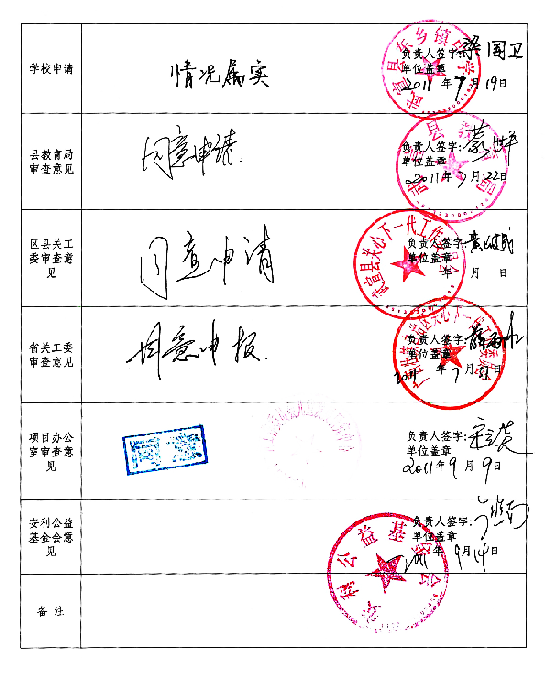 学校申请
情况属实
负责人签字:梁国卫
单位盖章
2011 年 7 月 19 日
县教育局
审查意见
同意申请.
负责人签字:
单位盖章
2011 年 7 月 22 日
区县关工
委审查意
见
同意申请
负责人签字:
单位盖章
年 月 日
武宣县关心下一代工作
省关工委
审查意见
同意申报.
负责人签字:
单位盖章
2011 年 7 月 日
项目办公
室审查意
见
负责人签字:
单位盖章
2011 年 9 月 9 日
安利公益
基金会意
见
负责人签字:
单位盖章
2011 年 9 月 14 日
安利公益基金会
备 注